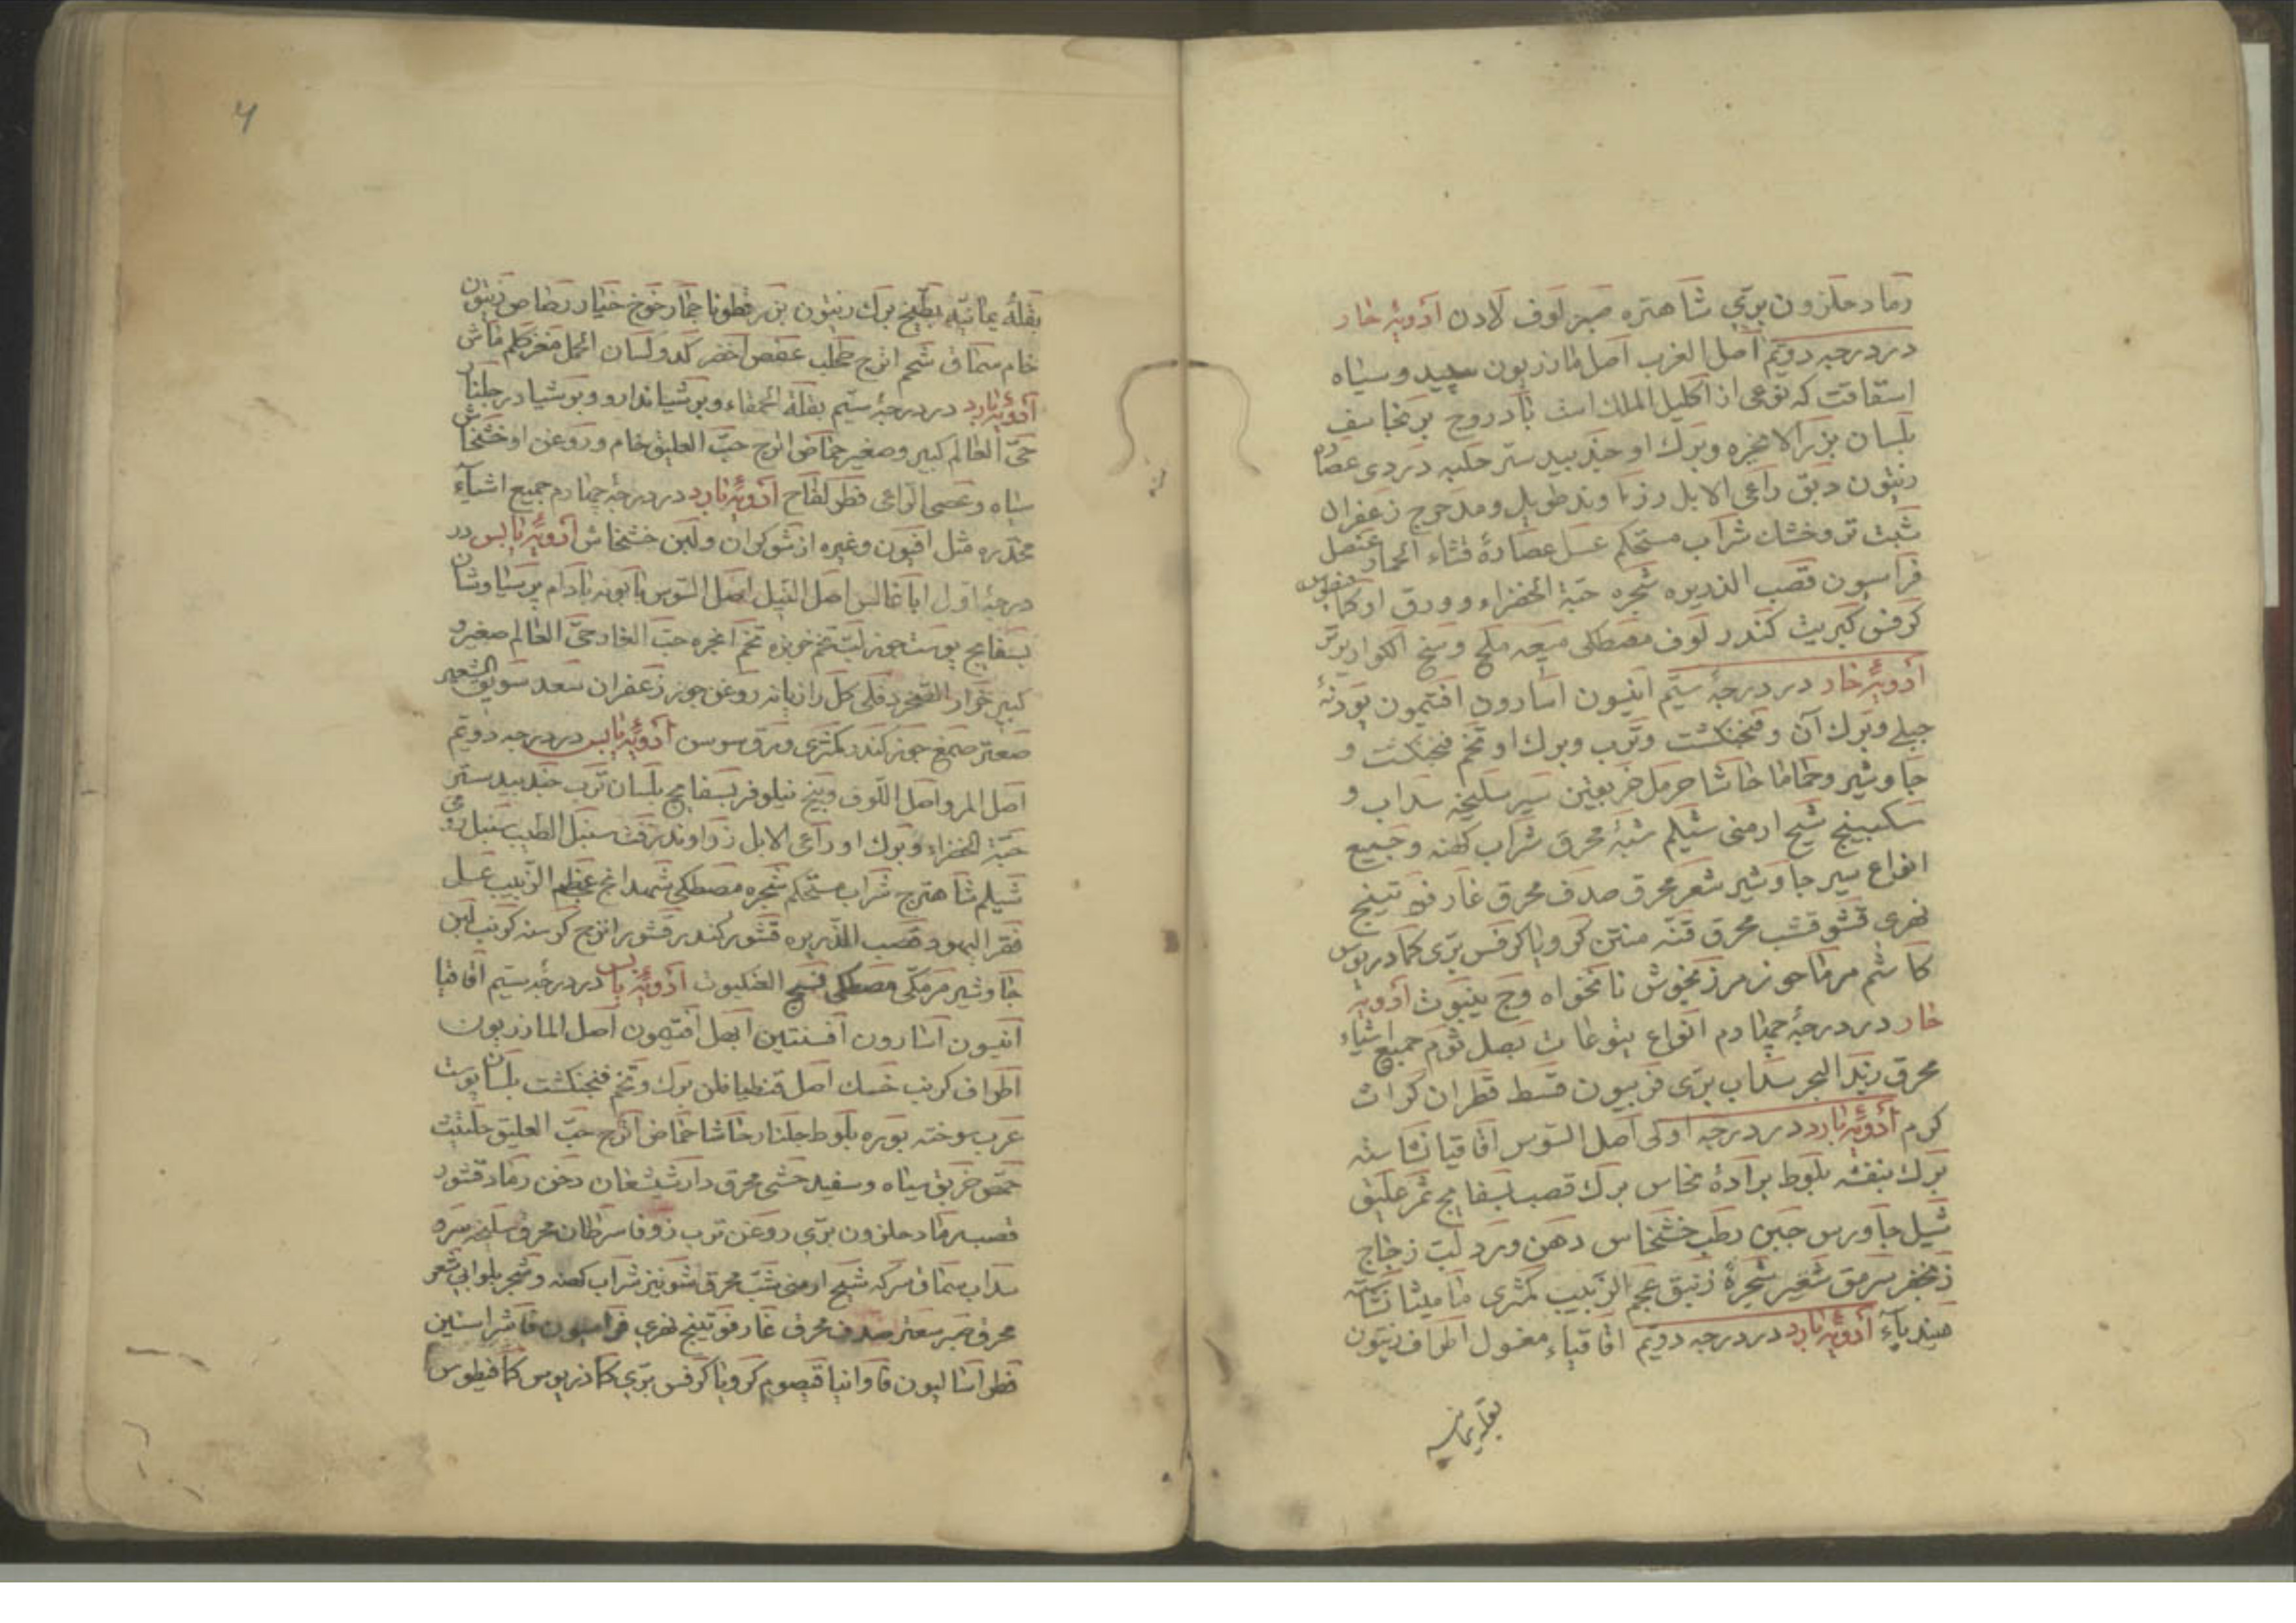 رماد حلزون بری شاهتره صبر لوف لادن ادویهٔ حار
در درجه دویم اصل الغرب اصل مازریون سپید و سیاه
اسقاقت که نوعی از اکلیل الملک است بادروج برنجاسف
بلسان بزر الانجره و برک او جندبیدستر حلبه دردی عصاره
زیتون دبق راعی الابل رزاوند طویل و مدحرج زعفران
شبت تر و خشک شراب مستحکم عسل عصارهٔ قثاء الحمار عنصل
فراسیون قصب الذریره شجره حبة الخضراء و ورق او کمافیطوس
کرفس کبریت کندر لوف مصطکی میعه ملح وسخ الکوار
ادویهٔ حار در درجهٔ سیّم انیسون اسارون افتیمون پودنهٔ
جبلی و برک آن و فنجنکشت و ترب و برک او تخم فنجنکشت و
جاوشیر و حماما حاشا حرمل خربقین سیر سلیخه سداب و
سکبینج شیح ارمنی شیلم شبهٔ محرق شراب کهنه و جمیع
انواع سیر جاوشیر شعر محرق صدف محرق غار فوتینج
نهری قشو قشب محرق قنّه منتن کرویا کرفس بری کمادریوس
کاشم مرماحوز مرزنجوش نانخواه وج ینبوت ادویهٔ
حار در درجهٔ چهارم انواع یتوعات بصل ثوم جمیع اشیاء
محرق زبد البحر سداب بری فربیون قسط قطران کراث
کرم ادویهٔ بارد در درجه اولی اصل السوس اقاقیا نشاسته
برک بنفشه بلوط برادهٔ نحاس برک قصب بسفایج ثمر علیق
ثیل جاورس جبن رطب خشخاس دهن ورد لبت زجاج
زنجفر سرمق شعیر شجرهٔ زنبق عجم الزبیب کمثری مامیثا نشاسته
هیندباء ادویهٔ بارد در درجه دویم اقاقیاء مغسول اطراف زیتون
بقلهٔ یمانیه
۴
بقلهٔ یمانیّه بطیخ برک زیتون بزر قطونا جمار خوخ خیار رصاص زیتون
خام سماق شحم اترج طحلب عفص اخضر کدو لسان الحمل مغر کلم ماش
ادویهٔ بارد در درجهٔ سیّم بقلة الحمقاء و بوشیاندارو و بوشیا در جلنار
حیّ العالم کبیر و صغیر حماض اترج حبّ العلیق خام و روغن او خشخاش
سیاه و عصی الراعی فطر لفاح ادویهٔ بارد در درجهٔ چهارم جمیع اشیاء
مخدّره مثل افیون و غیره از شوکران و لبن خشخاش ادویهٔ یابس در
درجهٔ اول اباغالس اصل النیل اصل السوس بابونه بادام پرسیاوشان
بسفایج پوست جوز لبّ تخم خربزه تخم انجره حبّ الغار حیّ العالم صغیر و
کبیر خوار الصخر دفلی کل رازیانه روغن جوز زعفران سعد سویق الشعیر
صعتر صمغ جوز کندر کمثری ورق سوس ادویهٔ یابس در درجه دویّم
اصل المر و اصل اللوف و بیخ نیلوفر بسفایج بلسان ترب جندبیدستر
حبّة الخضراء و برک او راعی الابل زراوند زفت سنبل الطیب سنبل رومی
شیلم شاهترج شراب مستحکم شجره مصطکی شهدانج عجم الزبیب عسل
فقر الیهود و قصب الذریره قشور کندر قشور اترج کرسنه کرنب لبن
جاوشیر مرمکّی مصطکی نسج العنکبوت ادویهٔ یابس در درجهٔ سیّم اقاقیا
انیسون اسارون افسنتین ابهل افتیمون اصل المازریون
اطراف کرنب خسک اصل قنطیافلن برک و تخم فنجنکشت بلسان پوست
عرب سوخته بوره بلوط جلنار حاشا حماض اترج حبّ العلیق حلتیت
حمّص خربق سیاه و سفید خشی محرق دارشیشغان دخن رماد قشور
قصب رماد حلزون برّی روغن ترب زوفا سرطان محرق سلیخه سره
سداب سماق سرکه شیح ارمنی شبّ محرق شونیز شراب کهنه و شجر بلوا بی شعر
محرق صبر سعتر صدف محرق غار فوتینج نهری فراسیون فاشراستین
فطراسالیون فاوانیا قیصوم کرویا کرفس برّی کماذریوس کمافیطوس